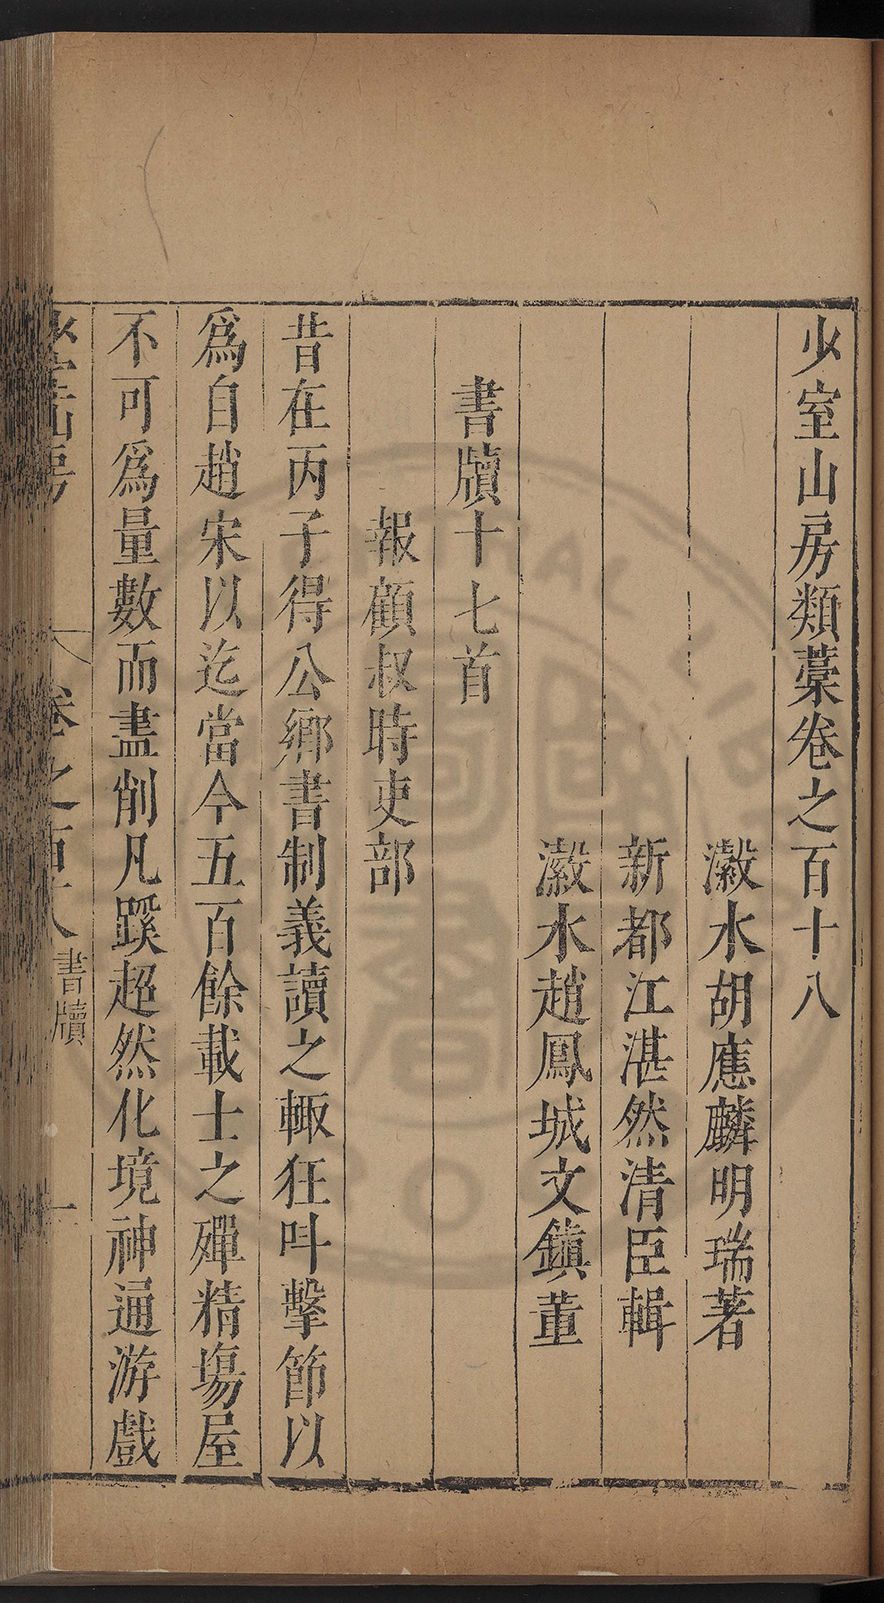 少室山房類藁卷之百十八
瀫水胡應麟明瑞著
新都江湛然清臣輯
瀫水趙鳳城文鎮董
書牘十七首
報顧叔時吏部
昔在丙子得公鄉書制義讀之輙狂叫擊節以
爲自趙宋以迄當今五百餘載士之殫精塲屋
不可爲量數而盡削凡蹊超然化境神通游戲
少室山房 卷之百十八 書牘 一